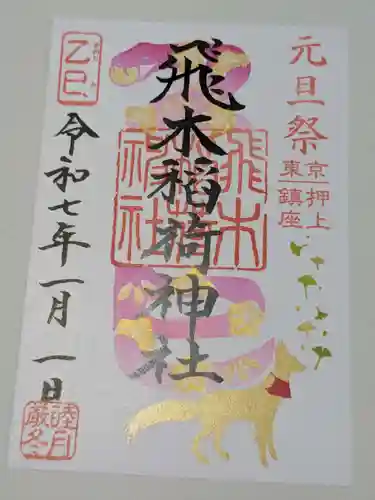 元旦祭
東京押上鎮座
飛木稲荷神社
飛木稲荷神社
乙巳
令和七年一月一日
睦月
厳冬